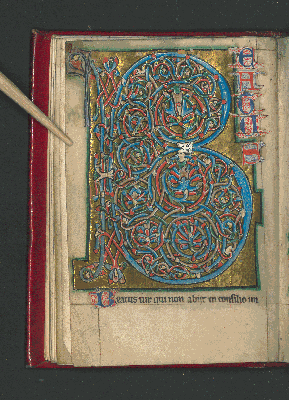 B
Beatus uir qui non abiit in consilio im